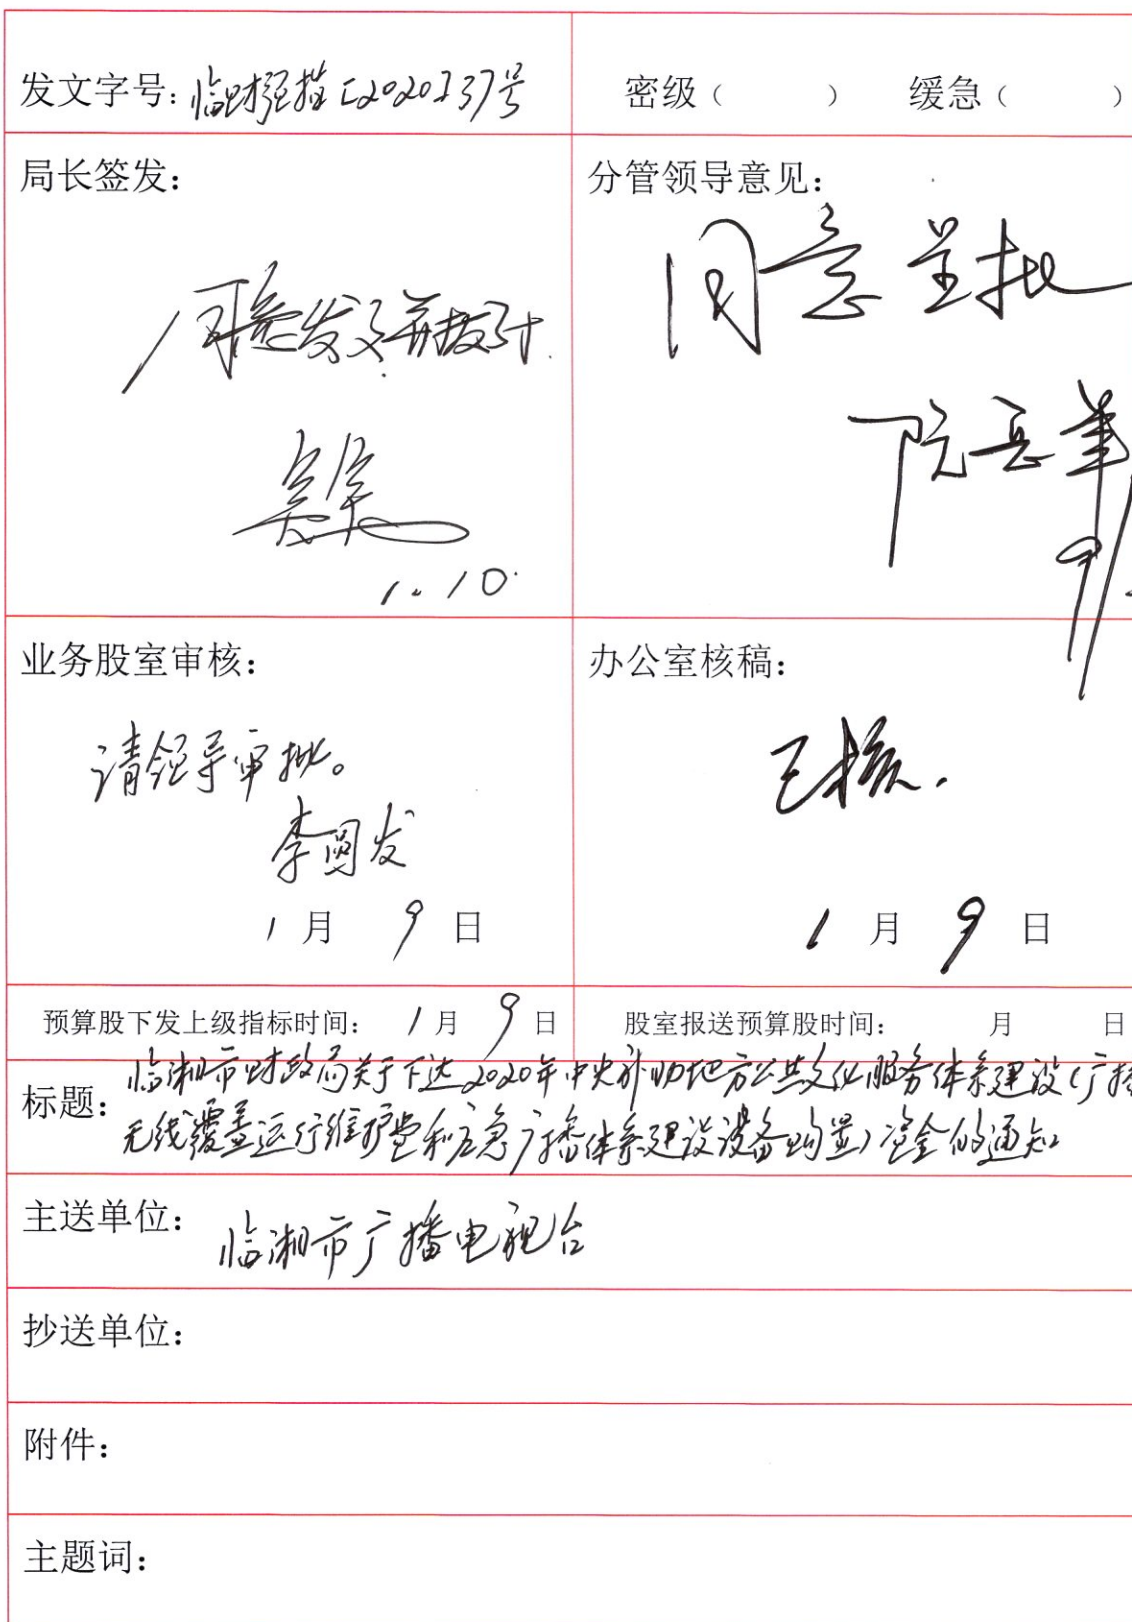 发文字号：临财预指［2020］37号
密级（　　）　缓急（　　）
局长签发：
同意发文并拨付.
1.10.
分管领导意见：
同意呈批
阮岳军
业务股室审核：
请领导审批。
李国发
1月9日
办公室核稿：
已核.
1月9日
预算股下发上级指标时间：1月9日
股室报送预算股时间：　月　日
标题：临湘市财政局关于下达2020年中央补助地方公共文化服务体系建设（广播
无线覆盖运行维护费和应急广播体系建设设备购置）资金的通知
主送单位：临湘市广播电视台
抄送单位：
附件：
主题词：